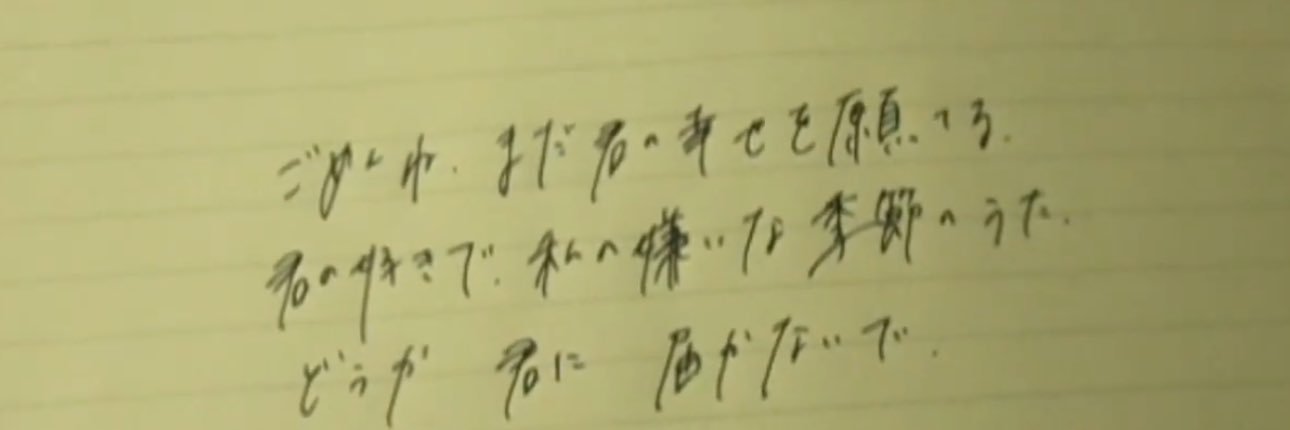 ごめんね、まだ君の幸せを願ってる、
君の好きで、私の嫌いな季節のうた、
どうか 君に 届かないで、